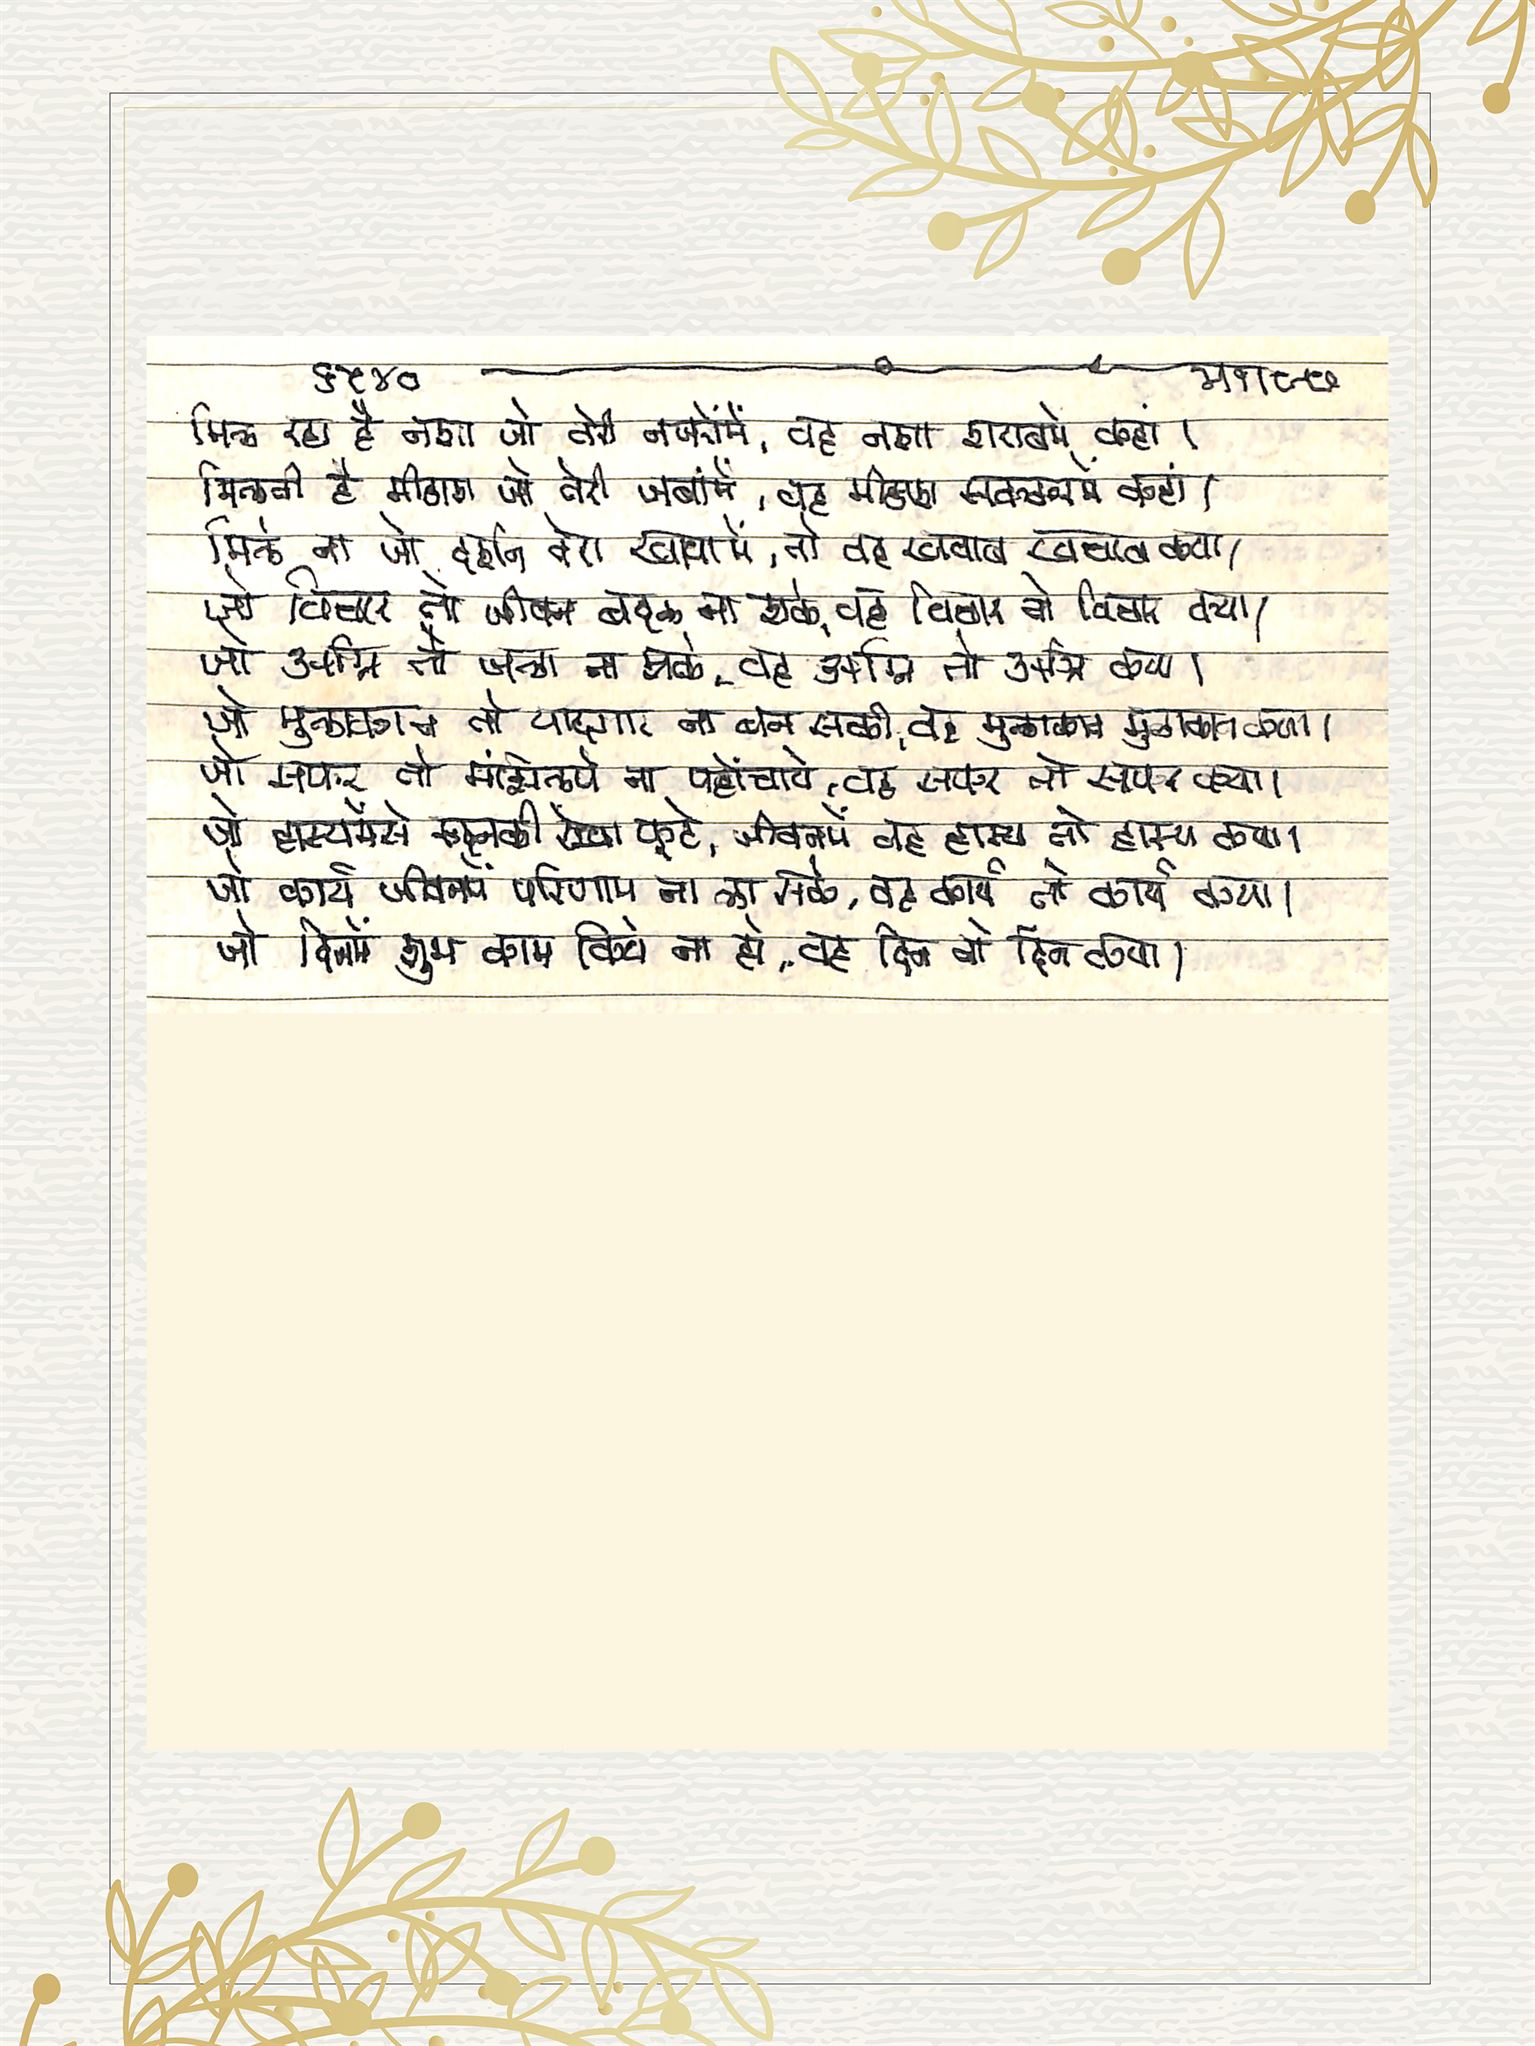 ६५४०
मिल रहा है नशा जो तेरी नजरोंमें, वह नशा शराबमें कहां ।
मिलती है मीठाश जो तेरी जबांमें, वह मीठाश सक्करमें कहां ।
मिले ना जो दर्शन तेरा ख्वाबोंमें, तो वह ख्वाब ख्वाब क्या ।
जो विचार तो जीवन बदल ना शके, वह विचार तो विचार क्या ।
जो अग्नि तो जला ना शके, वह अग्नि तो अग्नि क्या ।
जो मुलाकात तो यादगार ना बन सकी, वह मुलाकात मुलाकात क्या ।
जो सफर तो मंझिलपे ना पहोंचावे, वह सफर तो सफर क्या ।
जो हास्यमेंसे रूदनकी रेखा फूटे, जीवनमें वह हास्य तो हास्य क्या ।
जो कार्य जीवनमें परिणाम ना ला सके, वह कार्य तो कार्य क्या ।
जो दिनमें शुभ काम किये ना हो, वह दिन तो दिन क्या ।